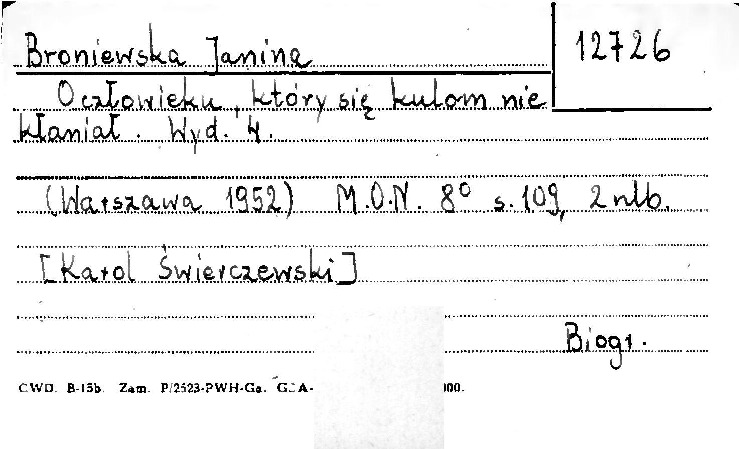 Broniewska Janina
12726
O człowieku, który się kulom nie
kłaniał. Wyd. 4.
(Warszawa 1952) M.O.N. 8° s. 109, 2 nlb.
[Karol Świerczewski]
Biogr.
CWD. B-15b. Zam. P/2523-PWH-Ga.
000.